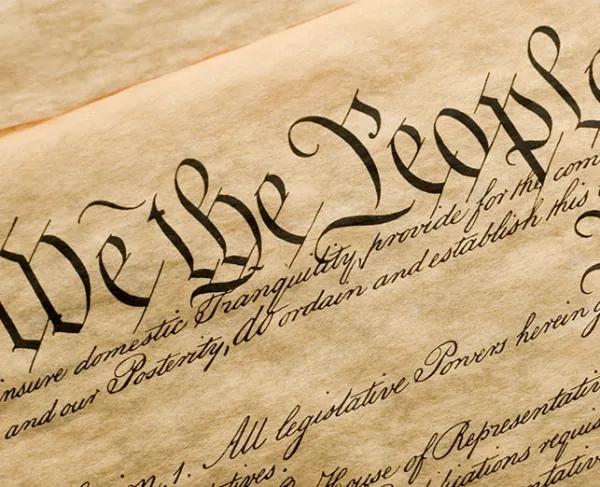 We the People
insure domestic Tranquility, provide for the com
and our Posterity, do ordain and establish this
1. All legislative Powers herein
House of Representati